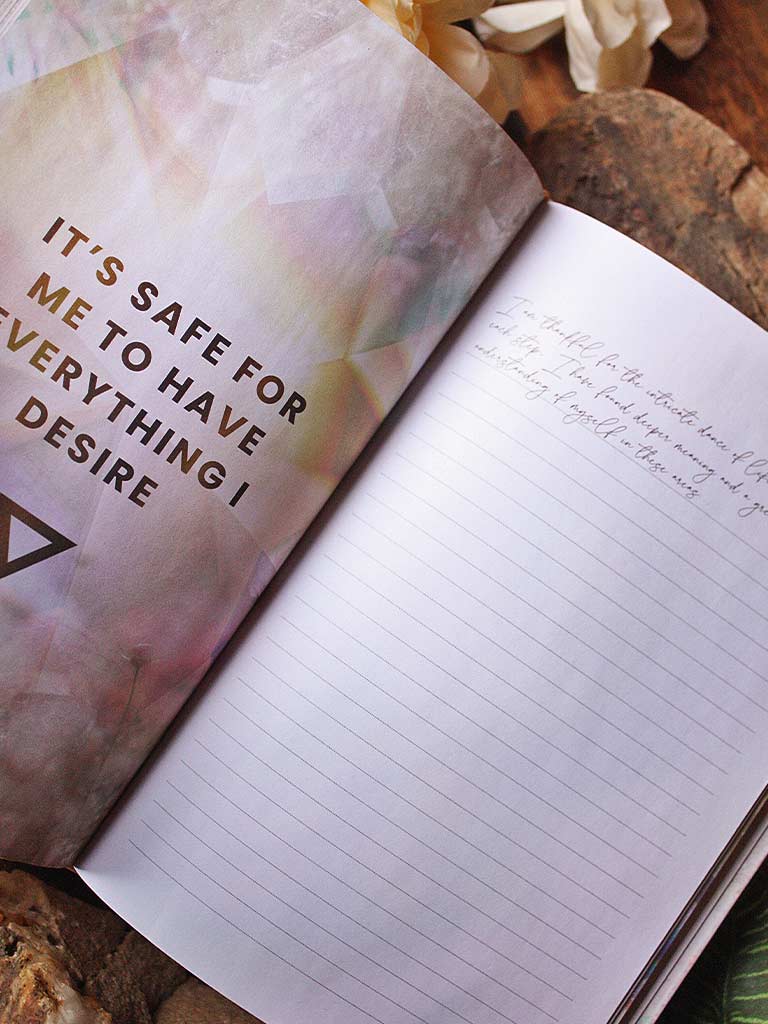 IT'S SAFE FOR
ME TO HAVE
EVERYTHING I
DESIRE
I am thankful for the intricate dance of life
each step. I have found deeper meaning and a gre
understanding of myself in these areas